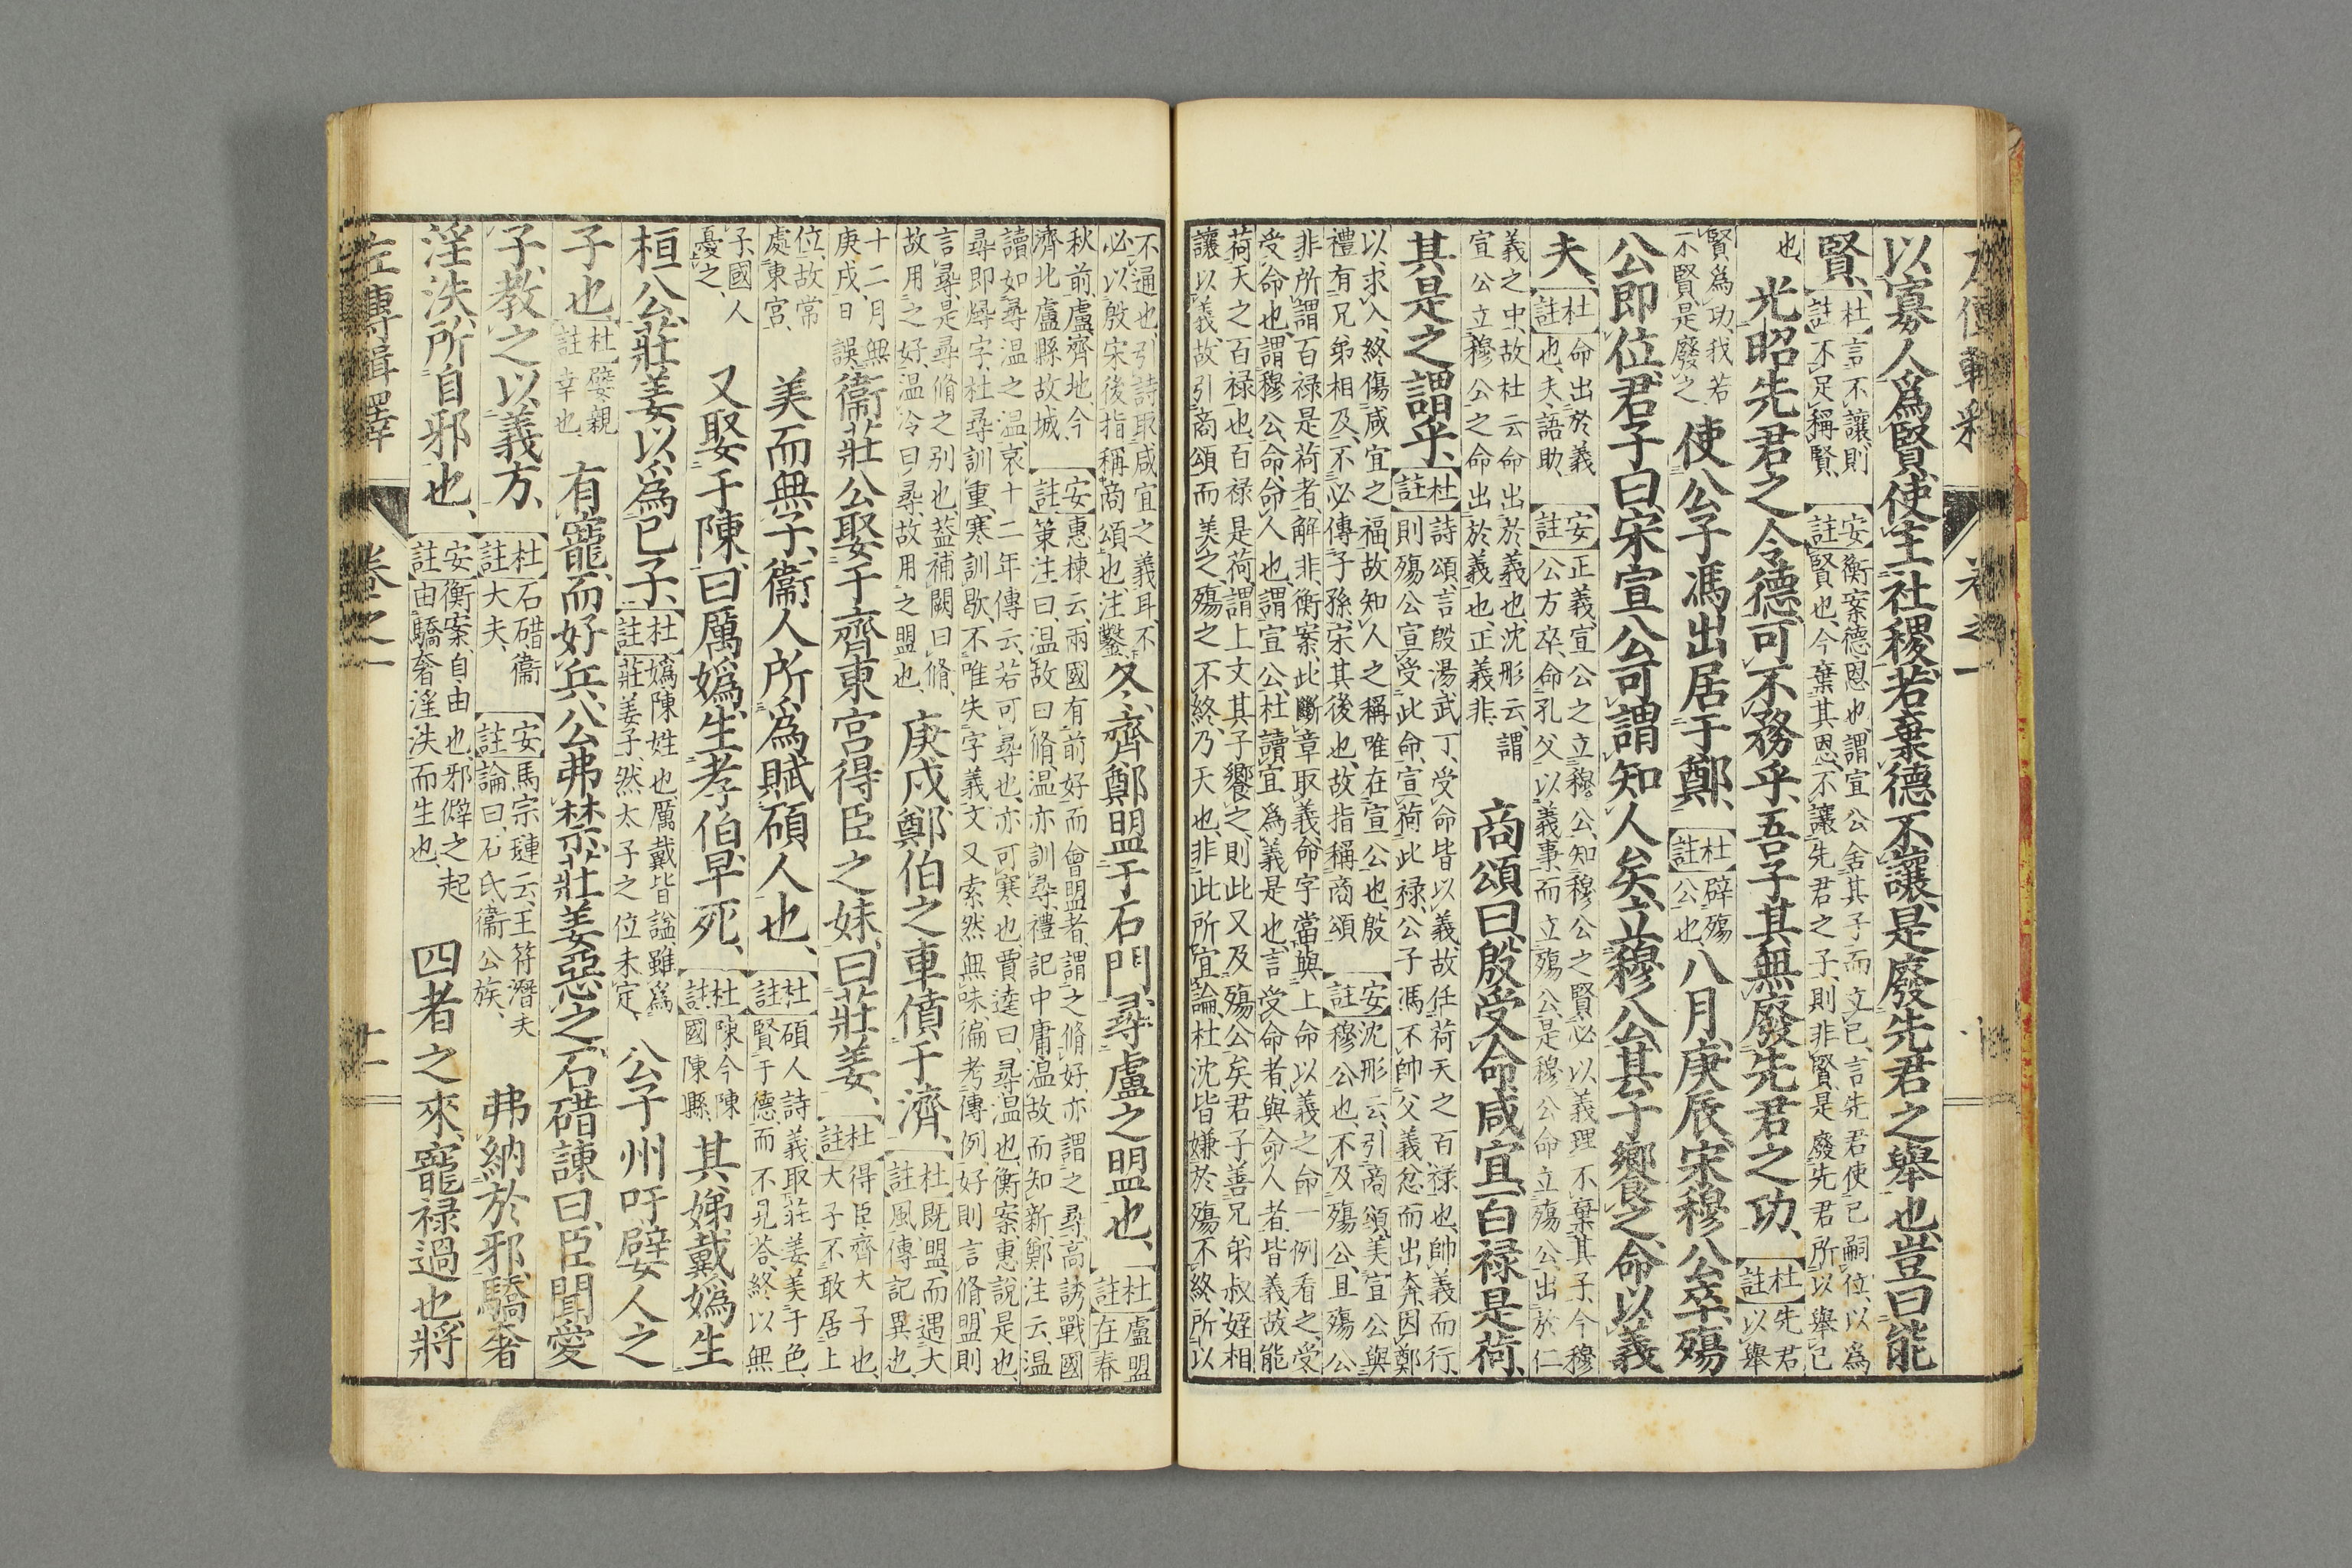 左傳輯釋 卷之一
以寡人爲賢、使主社稷、若棄德不讓、是廢先君之舉也、豈曰能
賢、
杜註 言不讓則不足稱賢、
安註 衡案、德恩也、謂宣公舍其子而立己、言先君使己嗣位、以爲賢也、今棄其恩、不讓先君之子、則非賢、是廢先君所以舉己也、
光昭先君之令德、可不務乎、吾子其無廢先君之功、
杜註 先君以舉賢爲功、我若不賢、是廢之、
使公子馮出居于鄭、
杜註 辟殤公也、
八月、庚辰、宋穆公卒、殤
公即位、君子曰、宋宣公可謂知人矣、立穆公、其子饗之、命以義
夫、
杜註 命出於義也、夫、語助、
安註 正義、宣公之立穆公、知穆公之賢、必以義理不棄其子、今穆公方卒、命孔父以義事而立殤公、是穆公命立殤公、出於仁義之中、故杜云命出於義也、沈彤云、謂宣公立穆公之命出於義也、正義非、
商頌曰、殷受命咸宜、百禄是荷、
其是之謂乎、
杜註 詩頌、言殷湯武丁、受命皆以義、故任荷天之百禄也、帥義而行、則殤公宣受此命、宣荷此禄、公子馮不帥父義、忿而出奔、因鄭以求入、終傷咸宜之福、故知人之稱唯在宣公也、殷禮有兄弟相及、不必傳子孫、宋其後也、故指稱商頌
安註 沈彤云、引商頌、美宣公與穆公也、不及殤公、且殤公非所謂百禄是荷者、解非、衡案、此斷章取義、命字當與上命以義之命一例看之、受受命也、謂穆公、命、命人也、謂宣公、杜讀宜爲義是也、言受命者、與命人者、皆義、故能荷天之百禄也、百禄是荷、謂上文其子饗之、則此又及殤公矣、君子善兄弟叔姪相讓以義、故引商頌而美之、殤之不終、乃天也、非此所宜論、杜沈皆嫌於殤不終、所以
不通也、引詩取咸宜之義耳、不必以殷宋後指稱商頌也、注鑿、
冬、齊鄭盟于石門、尋盧之盟也、
杜註 盧盟在春秋前、盧齊地、今濟北盧縣故城、
安註 惠棟云、兩國有前好而會盟者、謂之脩好、亦謂之尋、高誘戰國策注曰、温故曰脩、温亦訓尋、禮記中庸温故而知新、鄭注云、温讀如尋温之温、哀十二年傳云、若可尋也、亦可寒也、賈逵曰、尋温也、衡案、惠說是也、尋即燖字、杜尋訓重、寒訓歇、不唯失字義、文又索然無味、徧考傳例、好則言脩、盟則言尋、是尋脩之別也、葢補闕曰脩、故用之好、温冷曰尋、故用之盟也、
庚戌、鄭伯之車僨于濟、
杜註 既盟、而遇大風、傳記異也、十二月無庚戌、日誤、
衞莊公娶于齊東宮得臣之妹、曰莊姜、
杜註 得臣、齊大子也、大子不敢居上位、故常處東宮、
美而無子、衞人所爲賦碩人也、
杜註 碩人詩、義取莊姜美于色、賢于德、而不見荅、終以無子、國人憂之、
又娶于陳、曰厲嬀、生孝伯、早死、
杜註 陳今陳國陳縣、
其娣戴嬀生
桓公、莊姜以爲己子、
杜註 嬀、陳姓也、厲戴皆謚、雖爲莊姜子、然太子之位未定、
公子州吁、嬖人之
子也、
杜註 嬖、親幸也、
有寵、而好兵、公弗禁、莊姜惡之、石碏諫曰、臣聞愛
子、教之以義方、
杜註 石碏、衞大夫、
安註 馬宗璉云、王符潛夫論曰、石氏、衞公族、
弗納於邪、驕奢
淫泆、所自邪也、
安註 衡案、自由也、邪僻之起由驕奢淫泆而生也、
四者之來、寵禄過也、將
左傳輯釋 卷之一 十一